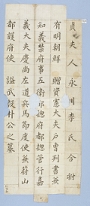 貞夫人永川李氏合祔
有明朝鮮 贈資憲大夫吏曹判書兼
知義禁府事五衛都摠府都摠管行嘉
義大夫慶尚左道兵馬節度使兼蔚山
都護府使 諡武毅朴公之墓